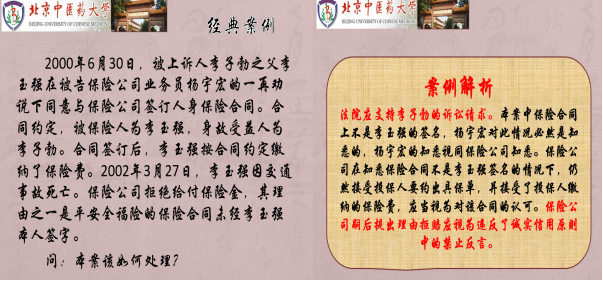 北京中医药大学
BEIJING UNIVERSITY OF CHINESE MEDICINE
经典案例
2000年6月30日，被上诉人李子勃之父李
玉强在被告保险公司业务员杨宇宏的一再劝
说下同意与保险公司签订人身保险合同。合
同约定，被保险人为李玉强，身故受益人为
李子勃。合同签订后，李玉强按合同约定缴
纳了保险费。2002年3月27日，李玉强因交通
事故死亡。保险公司拒绝给付保险金，其理
由之一是平安全福险的保险合同未经李玉强
本人签字。
问：本案该如何处理？
北京中医药大学
BEIJING UNIVERSITY OF CHINESE MEDICINE
案例解析
法院应支持李子勃的诉讼请求。本案中保险合同
上不是李玉强的签名，杨宇宏对此情况必然是知
悉的，杨宇宏的知悉视同保险公司知悉。保险公
司在知悉保险合同不是李玉强签名的情况下，仍
然接受投保人要约出具保单，并接受了投保人缴
纳的保险费，应当视为对该合同的认可。保险公
司嗣后提出理由拒赔应视为违反了诚实信用原则
中的禁止反言。